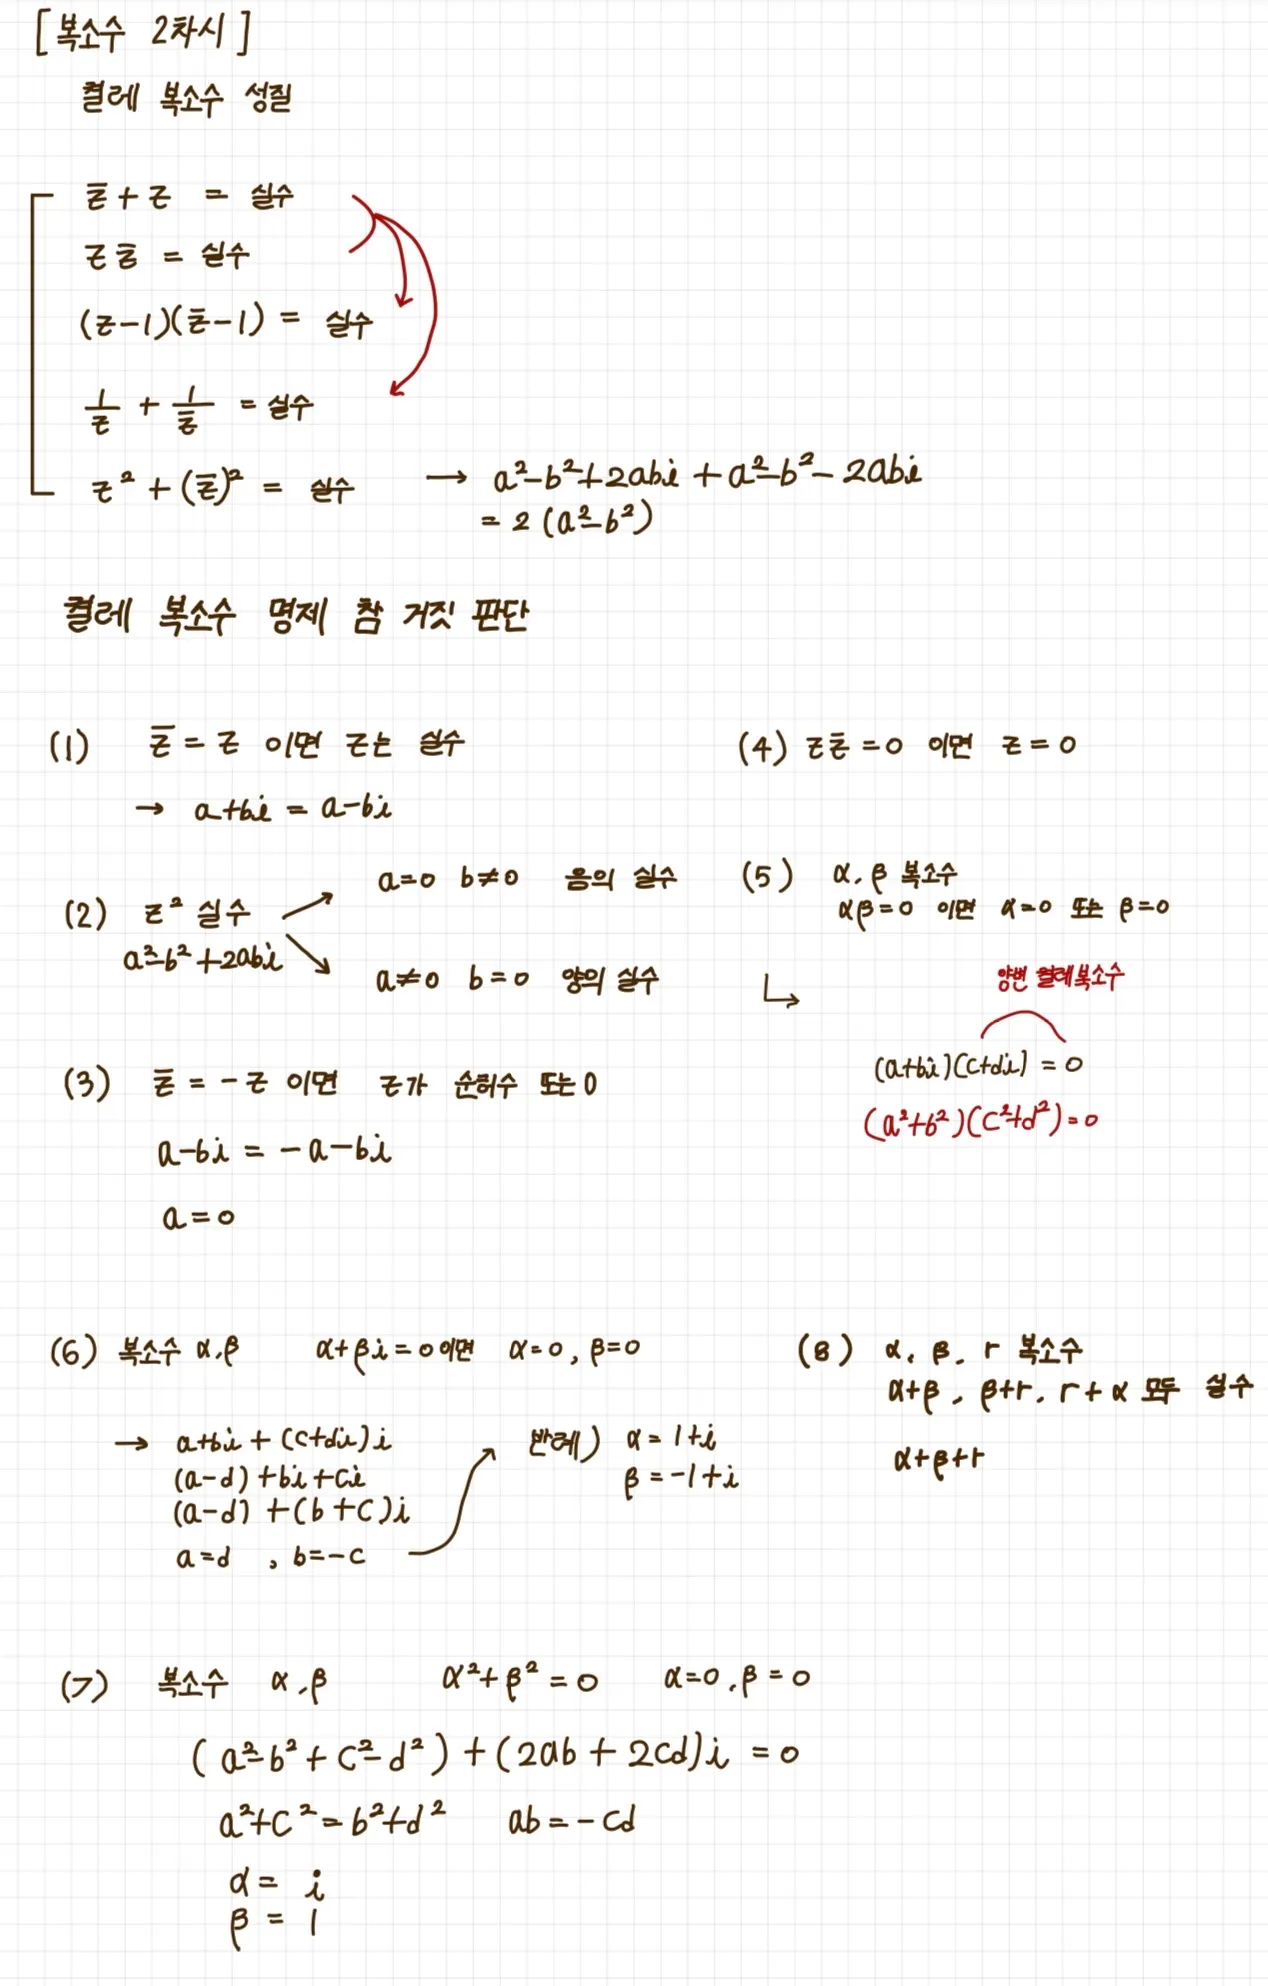 [복소수 2차시]
켤레 복소수 성질
z̅ + z = 실수
z z̅ = 실수
(z-1)(z̅-1) = 실수
1/z + 1/z̅ = 실수
z² + (z̅)² = 실수 → a²-b²+2abi + a²-b²-2abi
= 2(a²-b²)
켤레 복소수 명제 참 거짓 판단
(1) z̅ = z 이면 z는 실수
→ a+bi = a-bi
(2) z² 실수
a²-b²+2abi
a=0 b≠0 음의 실수
a≠0 b=0 양의 실수
(3) z̅ = -z 이면 z가 순허수 또는 0
a-bi = -a-bi
a=0
(4) z z̅ = 0 이면 z = 0
(5) α, β 복소수
αβ=0 이면 α=0 또는 β=0
양변 켤레복소수
(a+bi)(c+di) = 0
(a²+b²)(c²+d²)=0
(6) 복소수 α,β α+βi=0이면 α=0, β=0
→ a+bi + (c+di)i
(a-d) +bi+ci
(a-d) +(b+c)i
a=d , b=-c
반례) α = 1+i
β = -1+i
(8) α, β, r 복소수
α+β, β+r, r+α 모두 실수
α+β+r
(7) 복소수 α,β α²+β²=0 α=0,β=0
(a²-b²+c²-d²)+(2ab+2cd)i =0
a²+c²=b²+d² ab=-cd
α = i
β = 1